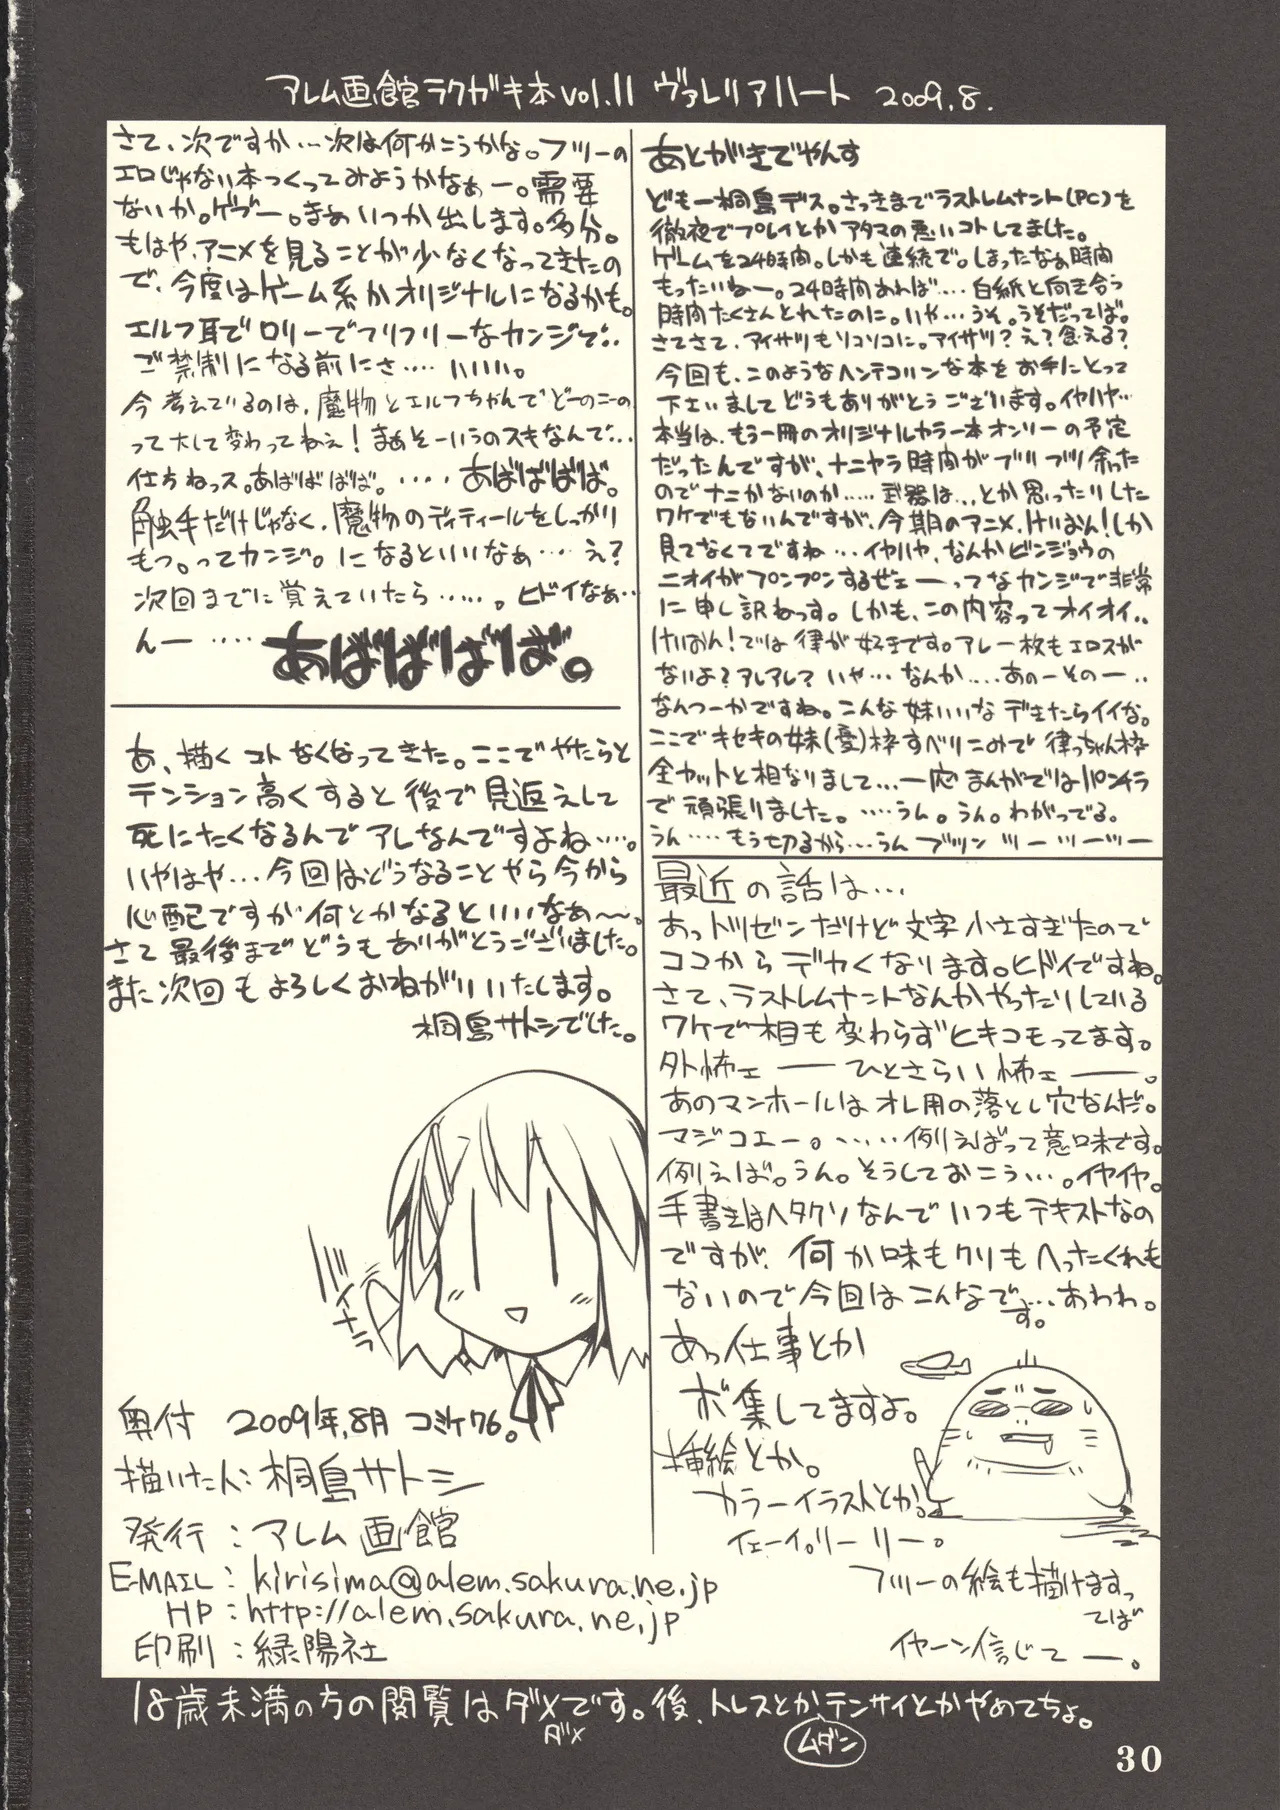 アレム画館ラクガキ本vol.11 ヴァレリアハート 2009.8.
あとがきでやんす
どもー桐島デス。さっきまでラストレムナント(PC)を
徹夜でプレイとかアタマの悪いコトしてました。
ゲームを24時間。しかも連続で。しまったなぁ時間
もったいねー。24時間あれば…白紙と向き合う
時間たくさんとれたのに。いや…うそ。うそだってば。
さてさて、アイサツもソコソコに。アイサツ?え?食える?
今回も、このようなヘンテコリンな本をお手にとって
下さいましてどうもありがとうございます。イヤハヤ…
本当は、もう一冊のオリジナルカラー本オンリーの予定
だったんですが、ナニヤラ時間がブリブリ余った
のでナニかないのか……武器は…とか思ったりした
ワケでもないんですが、今期のアニメ、けいおん!しか
見てなくてですね…イヤハヤ、なんかビンジョウの
ニオイがプンプンするぜェーってなカンジで非常
に申し訳ねっす。しかも、この内容ってオイオイ..
けいおん!では律が好きです。アレ一枚もエロスが
ないよ?アレアレ?いや…なんか……あのーそのー..
なんつーかですね。こんな妹いいなデきたらイイな。
ここでキセキの妹(憂)枠すべりこみで律っちゃん枠
全カットと相なりまして…一応まんがではパンチラ
で頑張りました。……うん。うん。わがってる。
うん……もう切るから…うんブツンツーツーツー
最近の話は…
あっトツゼンだけど文字小さすぎたので
ココからデカくなります。ヒドイですね。
さて、ラストレムナントなんかやったりしている
ワケで相も変わらずヒキコモってます。
外怖ェーひとさらい怖ェー。
あのマンホールはオレ用の落とし穴なんだ。
マジコエー。……例えばって意味です。
例えば。うん。そうしておこう…。イヤイヤ。
手書きはヘタクソなんでいつもテキストなの
ですが、何か味もクソもへったくれも
ないので今回はこんなです。…あわわ。
あっ仕事とか
ボ集してますよ。
挿絵とか。
カラーイラストとかっ
イェーイ。リーリー。
フツーの絵も描けますっ
てば
イヤーン信じてー。
さて、次ですか…次は何かこうかな。フツーの
エロじゃない本つくってみようかなぁー。需要
ないか。ゲブー。まぁいつか出します。多分。
もはや、アニメを見ることが少なくなってきたの
で、今度はゲーム系かオリジナルになるかも。
エルフ耳でロリーでフリフリーなカンジで..
ご禁制になる前にさ……いいい。
今考えているのは、魔物とエルフちゃんでどーのこーの
って大して変わってねぇ!まぁそーいうのスキなんで…
仕方ねっス。あばばばば。……あばばばば。
触手だけじゃなく、魔物のディティールをしっかり
もつ。ってカンジ。になるといいなぁ…え?
次回までに覚えていたら……。ヒドイなぁ…
んー……あばばばば。
あ、描くコトなくなってきた。ここでやたらと
テンション高くすると後で見返えして
死にたくなるんでアレなんですよね……。
いやはや…今回はどうなることやら今から
心配ですが何とかなるといいなぁ〜。
さて最後までどうもありがとうございました。
また次回もよろしくおねがいいたします。
桐島サトシでした。
奥付 2009年,8月 コミケ76。
描いた人:桐島サトシ
発行:アレム画館
E-MAIL:kirisima@alem.sakura.ne.jp
HP:http://alem.sakura.ne.jp
印刷:緑陽社
18歳未満の方の閲覧はダメです。後、トレスとか、テンサイとかやめてちょ。
ダメ
ムダン
30